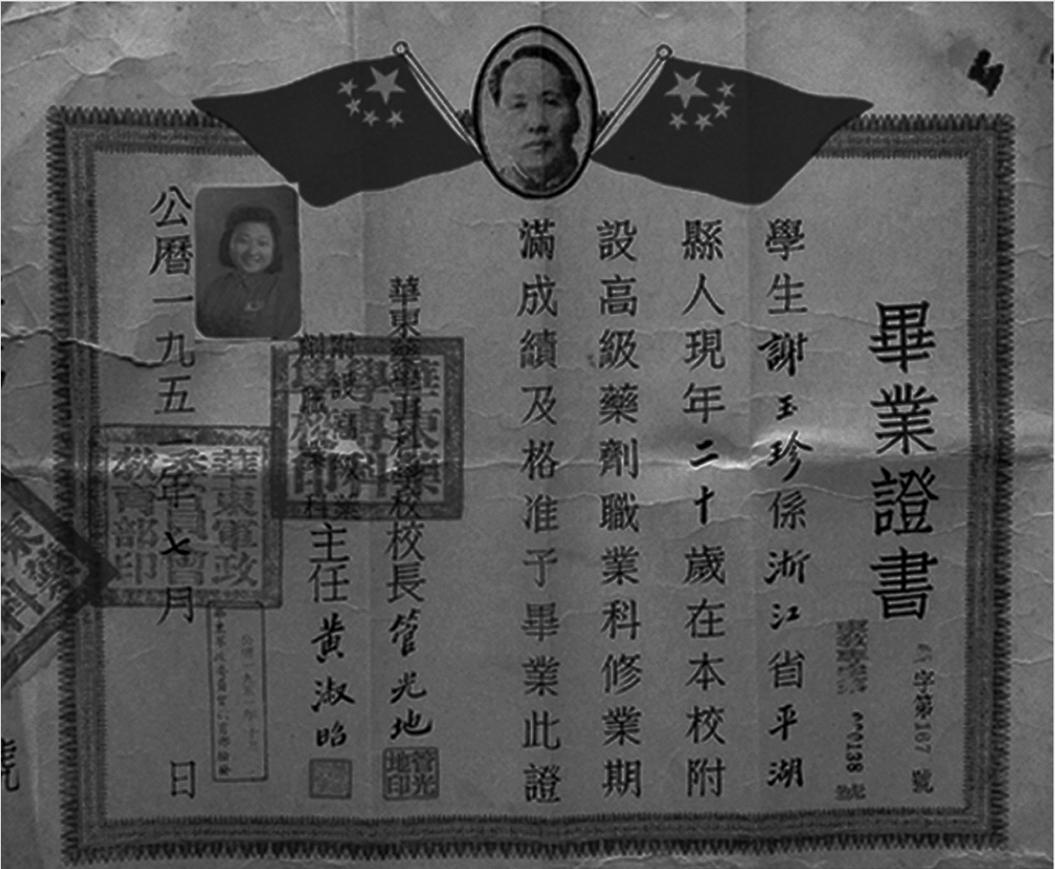 畢業證書
字第167號
000138號
學生謝玉珍係浙江省平湖
縣人現年二十歲在本校附
設高級藥劑職業科修業期
滿成績及格准予畢業此證
華東藥學專科學校校長管光地
管光地印
主任黃淑昭
公曆一九五一年七月 日
華東軍政委員會教育部印